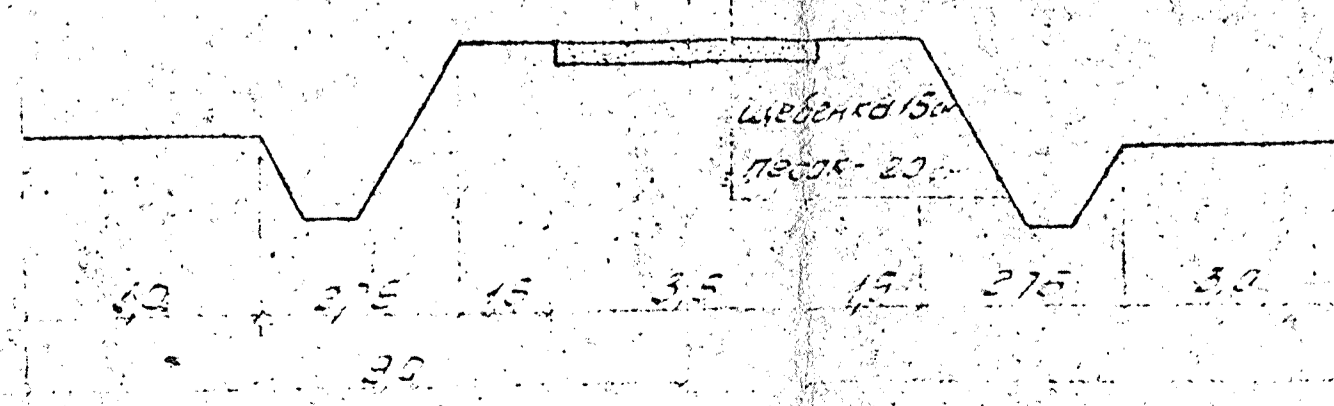 щебенка 15см
песок - 20 см
1,0 2,75 1,5 3,5 1,5 2,75 3,0